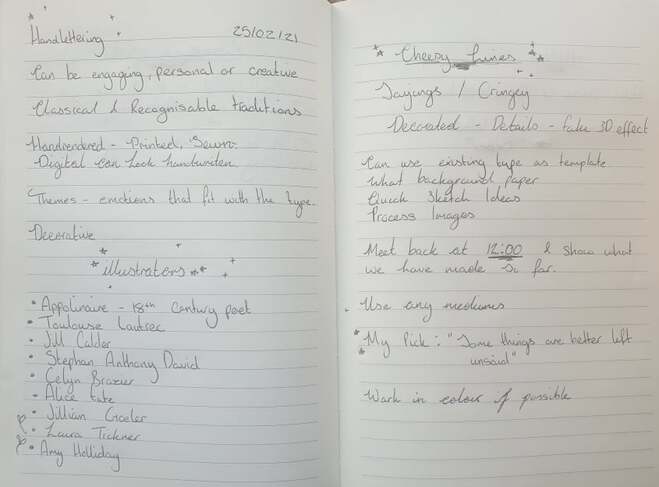 Handlettering 25/02/21
Can be engaging, personal or creative
Classical & Recognisable traditions
Handrendered - Printed, Sewn.
Digital can look handwriten
Themes - emotions that fit with the type.
Decorative
illustrators
• Appolinaire - 18th Century poet
• Toulouse Lautrec
• Jill Calder
• Stephan Anthony David
• Celyn Brazier
• Alice Tate
• Jillian
• Laura Tickner
• Amy Holliday
Cheesy Lines
Sayings / Cringey
Decorated - Details - fake 3D effect
Can use existing type as template
What background paper
Quick Sketch Ideas
Process Images
Meet back at 12:00 & show what
we have made so far.
Use any mediums
My Pick: "Some things are better left
unsaid"
Work in colour if possible